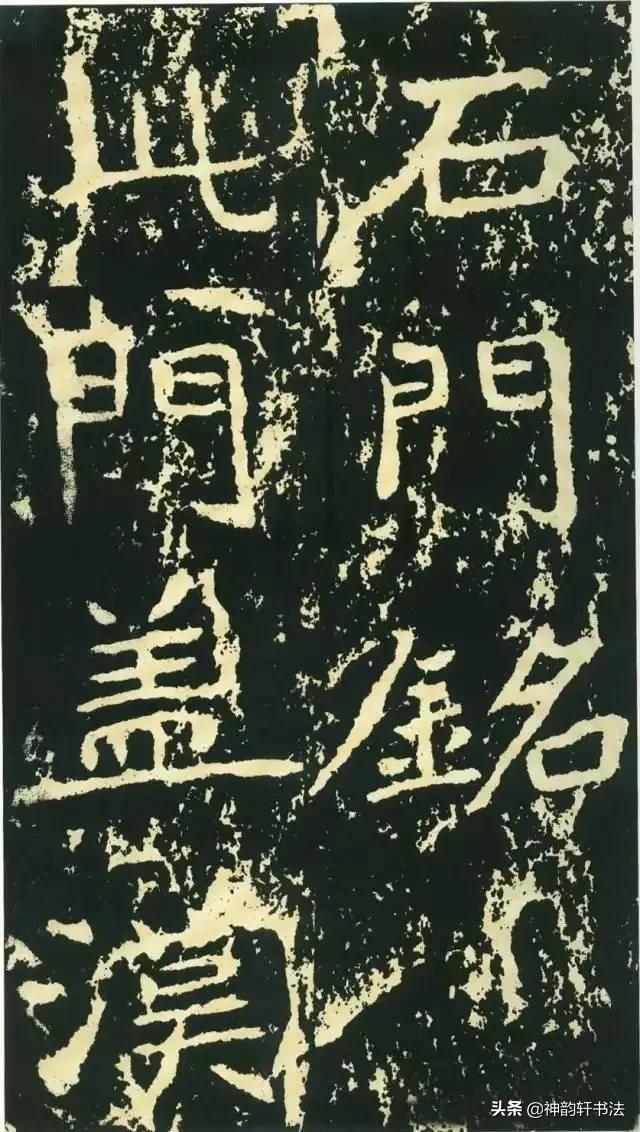 石門銘
此門盖漢
头条 @神韵轩书法